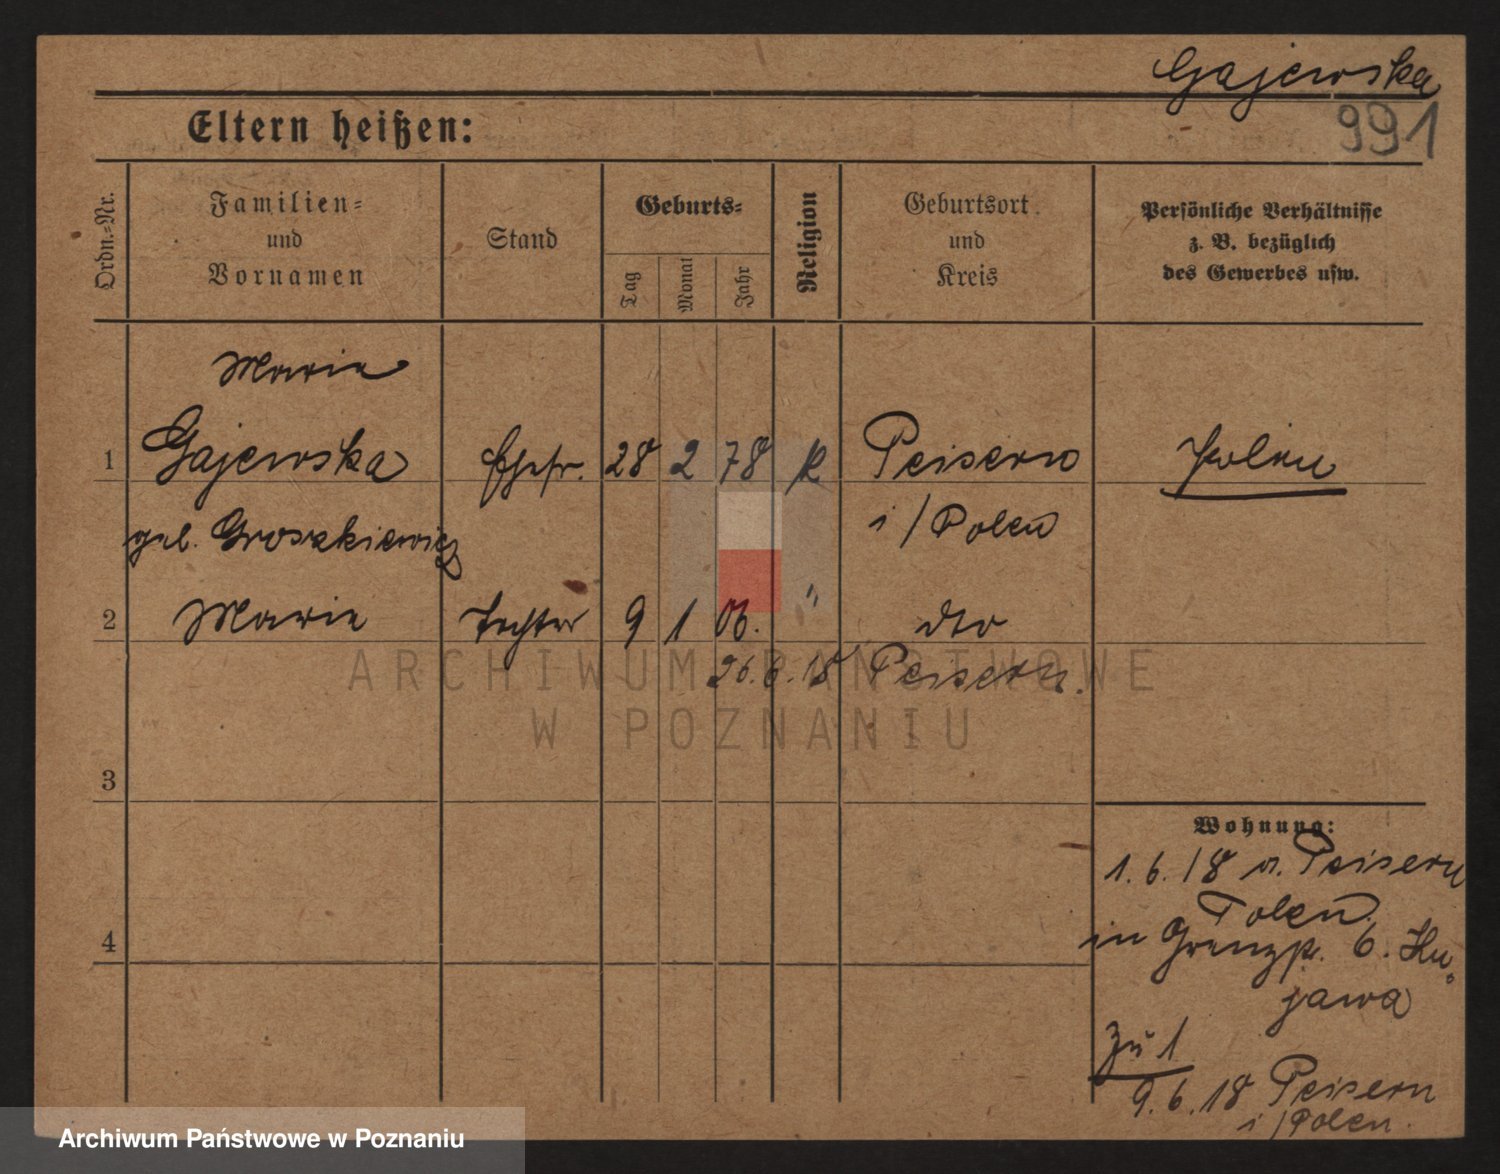 Gajewska
991
Eltern heißen:
Ordn.-Nr.
Familien-
und
Vornamen
Stand
Geburts-
Tag
Monat
Jahr
Religion
Geburtsort
und
Kreis
Persönliche Verhältnisse
z. B. bezüglich
des Gewerbes usw.
Marie
1 Gajewska Ehefr. 28 2 78 K Peisern Polen
geb. Groszkiewicz i/Polen
2 Marie Tochter 9 1 06. " dto
26.6.18 Peisern.
ARCHIWUM PAŃSTWOWE
W POZNANIU
3
Wohnung:
1.6.18 v. Peisern
Polen.
4
in Grenzp. 6. Ku-
jawa
Zu 1
9.6.18 Peisern
i/Polen.
Archiwum Państwowe w Poznaniu